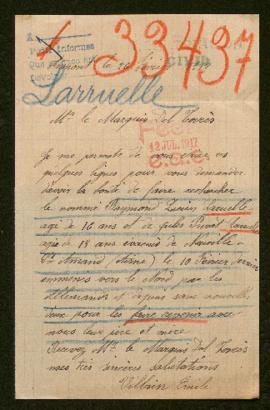 33437
Pour informer
Larruelle
Mr le Marquis del Torcis
12 JUIL. 1917
Je me permets de vous écrire ces
quelques lignes pour vous demander
d'avoir la bonté de faire rechercher
le nommé Raymond Lucien Laruelle
agé de 16 ans et de Jules
agé de 18 ans évacués de Neuville
St Amand (Aisne) le 10 Février dernier
emmenés vers le Nord par les
allemands et depuis sans nouvelle
deux pour les faire revenir avec
nous leur père et mère
Recevez Mr le Marquis del Torcis
mes très sincères salutations
Villain Emile